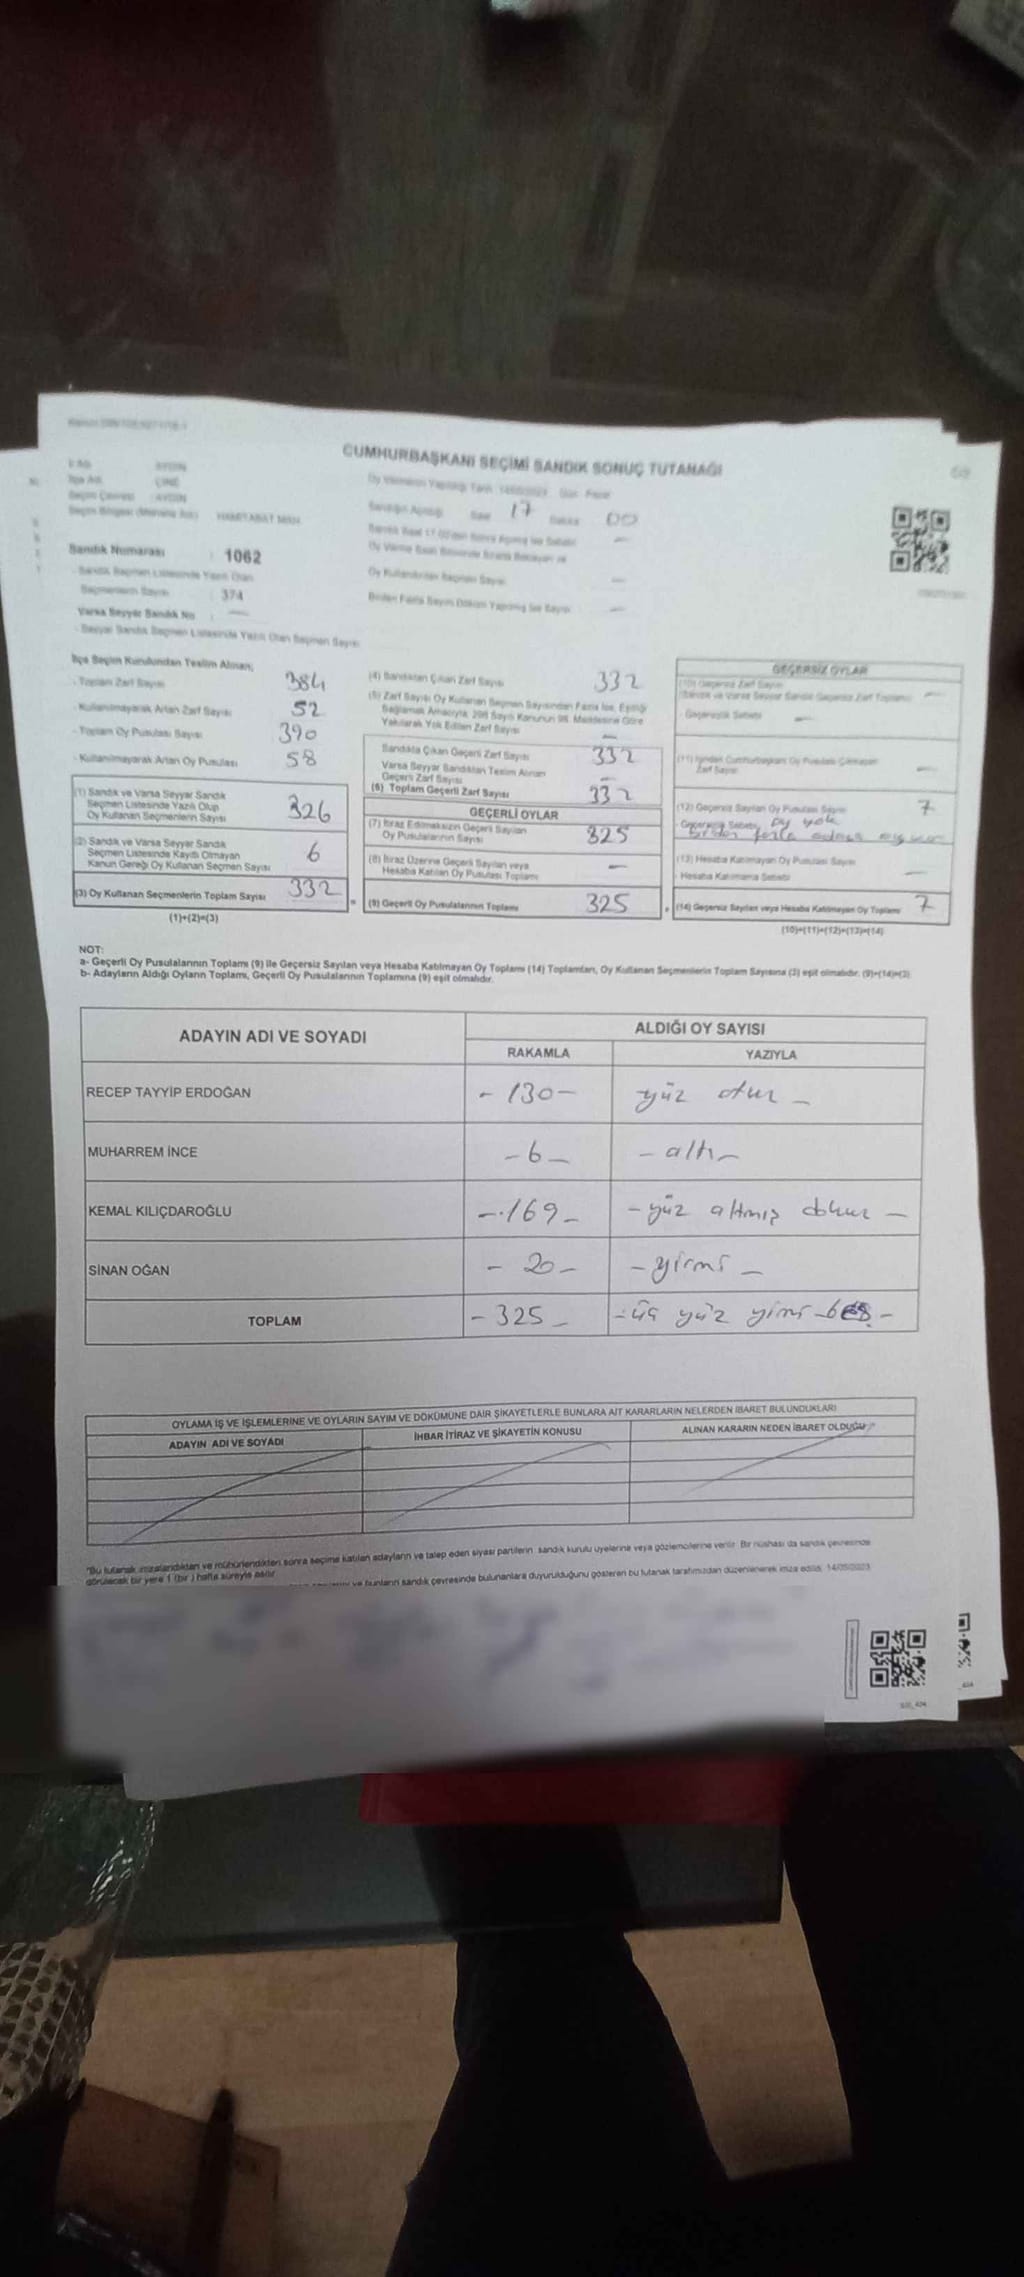 CUMHURBAŞKANI SEÇİMİ SANDIK SONUÇ TUTANAĞI
İl Adı AYDIN
İlçe Adı ÇİNE
Seçim Çevresi : AYDIN
Sandığın Açıldığı Saat 17 Dakika 00
Sandık Numarası : 1062
- Sandık Seçmen Listesinde Yazılı Olan
Seçmenlerin Sayısı : 374
Varsa Seyyar Sandık No : —
- Seyyar Sandık Seçmen Listesinde Yazılı Olan Seçmen Sayısı
Oy Kullandırılan Seçmen Sayısı —
Birden Fazla Sayım Döküm Yapılmış İse Sayısı —
İlçe Seçim Kurulundan Teslim Alınan;
- Toplam Zarf Sayısı 384
- Kullanılmayarak Artan Zarf Sayısı 52
- Toplam Oy Pusulası Sayısı 390
- Kullanılmayarak Artan Oy Pusulası 58
(1) Sandık ve Varsa Seyyar Sandık
Seçmen Listesinde Yazılı Olup
Oy Kullanan Seçmenlerin Sayısı 326
(2) Sandık ve Varsa Seyyar Sandık
Seçmen Listesinde Kayıtlı Olmayan
Kanun Gereği Oy Kullanan Seçmen Sayısı 6
(3) Oy Kullanan Seçmenlerin Toplam Sayısı 332
(1)+(2)=(3)
(4) Sandıktan Çıkan Zarf Sayısı 332
(5) Zarf Sayısı Oy Kullanan Seçmen Sayısından Fazla İse, Eşitliği
Sağlamak Amacıyla, 298 Sayılı Kanunun 98. Maddesine Göre
Yakılarak Yok Edilen Zarf Sayısı —
Sandıkta Çıkan Geçerli Zarf Sayısı 332
Varsa Seyyar Sandıktan Teslim Alınan
Geçerli Zarf Sayısı —
(6) Toplam Geçerli Zarf Sayısı 332
GEÇERLİ OYLAR
(7) İtiraz Edilmeksizin Geçerli Sayılan
Oy Pusulalarının Sayısı 325
(8) İtiraz Üzerine Geçerli Sayılan veya
Hesaba Katılan Oy Pusulası Toplamı —
(9) Geçerli Oy Pusulalarının Toplamı 325
GEÇERSİZ OYLAR
(10) Geçersiz Zarf Sayısı
(Sandık ve Varsa Seyyar Sandık Geçersiz Zarf Toplamı) —
- Geçersizlik Sebebi —
(11) İçinden Cumhurbaşkanı Oy Pusulası Çıkmayan
Zarf Sayısı —
(12) Geçersiz Sayılan Oy Pusulası Sayısı 7
- Geçersizlik Sebebi oy yok
Birden fazla adaya
(13) Hesaba Katılmayan Oy Pusulası Sayısı
- Hesaba Katılmama Sebebi —
(14) Geçersiz Sayılan veya Hesaba Katılmayan Oy Toplamı 7
(10)+(11)+(12)+(13)=(14)
NOT:
a- Geçerli Oy Pusulalarının Toplamı (9) ile Geçersiz Sayılan veya Hesaba Katılmayan Oy Toplamı (14) Toplamları, Oy Kullanan Seçmenlerin Toplam Sayısına (3) eşit olmalıdır. (9)+(14)=(3)
b- Adayların Aldığı Oyların Toplamı, Geçerli Oy Pusulalarının Toplamına (9) eşit olmalıdır.
ADAYIN ADI VE SOYADI ALDIĞI OY SAYISI
RAKAMLA YAZIYLA
RECEP TAYYİP ERDOĞAN - 130 - yüz otuz -
MUHARREM İNCE - 6 - - altı -
KEMAL KILIÇDAROĞLU - 169 - - yüz altmış dokuz -
SİNAN OĞAN - 20 - - yirmi -
TOPLAM - 325 - - üç yüz yirmi beş -
OYLAMA İŞ VE İŞLEMLERİNE VE OYLARIN SAYIM VE DÖKÜMÜNE DAİR ŞİKAYETLERLE BUNLARA AİT KARARLARIN NELERDEN İBARET BULUNDUKLARI
ADAYIN ADI VE SOYADI İHBAR İTİRAZ VE ŞİKAYETİN KONUSU ALINAN KARARIN NEDEN İBARET OLDUĞU
"Bu tutanak, imzalandıktan ve mühürlendikten sonra seçime katılan adayların ve talep eden siyasi partilerin sandık kurulu üyelerine veya gözlemcilerine verilir. Bir nüshası da sandık çevresinde
görülecek bir yere 1 (bir) hafta süreyle asılır.
ve bunların sandık çevresinde bulunanlara duyurulduğunu gösteren bu tutanak tarafımızdan düzenlenerek imza edildi. 14/05/2023